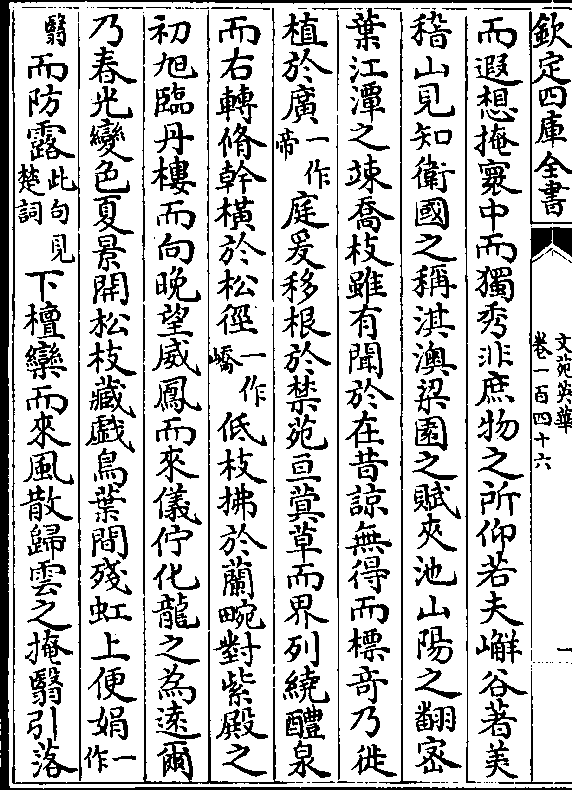 欽定四庫全書
文苑英華
卷一百四十六
一
而遐想掩寰中而獨秀非庶物之所仰若夫嶰谷著美
稽山見知衛國之稱淇澳梁園之賦夾池山陽之翻密
葉江潭之竦喬枝雖有聞於在昔諒無得而標奇乃徙
植於廣一作帝庭爰移根於禁苑亘蓂草而界列繞醴泉
而右轉脩幹橫於松徑一作嶠低枝拂於蘭畹對紫殿之
初旭臨丹樓而向晚望威鳳而來儀佇化龍之為遠爾
乃春光變色夏景開松枝藏戲鳥葉間殘虹上便娟一作
翳而防露此句見楚詞下檀欒而來風散歸雲之掩翳引落